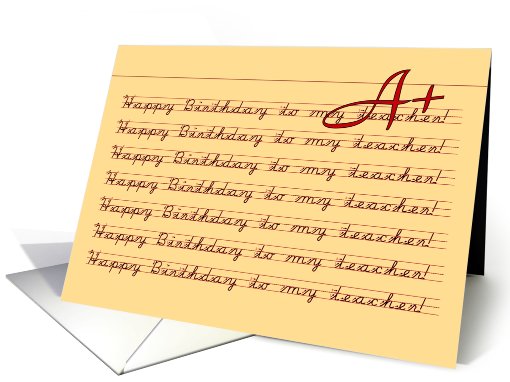 A+
Happy Birthday to my teacher!
Happy Birthday to my teacher!
Happy Birthday to my teacher!
Happy Birthday to my teacher!
Happy Birthday to my teacher!
Happy Birthday to my teacher!
Happy Birthday to my teacher!